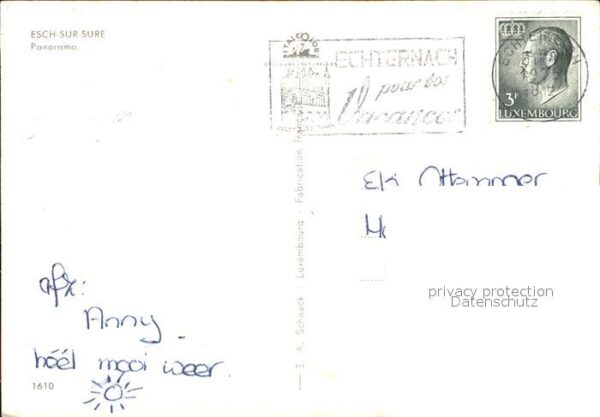 ESCH-SUR-SURE
Panorama.
ECHTERNACH
pour vos
Vacances
3F
LUXEMBOURG
E. A. Schaack - Luxembourg - Fabrication française
Hammer
privacy protection
Datenschutz
afz:
Anny
hóél mooi weer.
1610